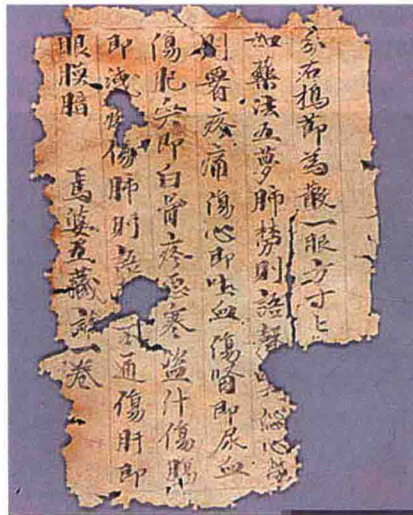 分右搗篩為散一服方寸匕
藥法五勞肺勞則語聲心勞
則疼痛傷心即吐血傷腎即尿血
傷肥即白骨疼惡寒盜汗傷腸
即洩傷肺則語不通傷肝即
眼膜暗 耆婆五藏論一卷